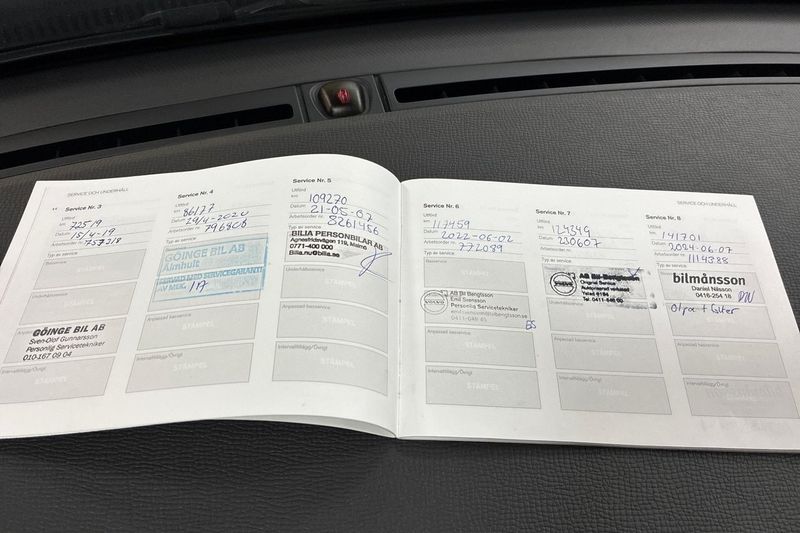 SERVICE OCH UNDERHÅLL
Service Nr. 3
Utförd
km 72519
Datum 15/4-19
Arbetsorder nr. 757218
Typ av service
Basservice
STÄMPEL
GÖINGE BIL AB
Sven-Olof Gunnarsson
Personlig Servicetekniker
010-167 09 04
Intervalltillägg/Övrigt
STÄMPEL
Service Nr. 4
Utförd
km 86177
Datum 29/4-2020
Arbetsorder nr. 796808
Typ av service
GÖINGE BIL AB
Älmhult
Anpassad basservice
STÄMPEL
Intervalltillägg/Övrigt
STÄMPEL
Service Nr. 5
Utförd
km 109270
Datum 21-05-07
Arbetsorder nr. 8261456
Typ av service
BILIA PERSONBILAR AB
Agnesfridsvägen 119, Malmö
0771-400 000
Bilia.nu@bilia.se
Underhållsservice
STÄMPEL
Anpassad basservice
STÄMPEL
Intervalltillägg/Övrigt
STÄMPEL
Service Nr. 6
Utförd
km 117459
Datum 2022-06-02
Arbetsorder nr. 772039
Typ av service
Basservice
STÄMPEL
AB Bil Bengtsson
Emil Svensson
Personlig Servicetekniker
0411-648 45
ES
Anpassad basservice
STÄMPEL
Intervalltillägg/Övrigt
STÄMPEL
SERVICE OCH UNDERHÅLL
Service Nr. 7
Utförd
km 124349
Datum 230607
Arbetsorder nr.
Typ av service
VOLVO
AB Bil Bengtsson
Original Service
Auktoriserad verkstad
Ystad 6184
Tel. 0411-648 00
Anpassad basservice
STÄMPEL
Intervalltillägg/Övrigt
STÄMPEL
Service Nr. 8
Utförd
km 141701
Datum 2024-06-07
Arbetsorder nr. 1114388
Typ av service
bilmånsson
Daniel Nilsson
0416-254 18
Olja + filter
Anpassad basservice
STÄMPEL
Intervalltillägg/Övrigt
STÄMPEL